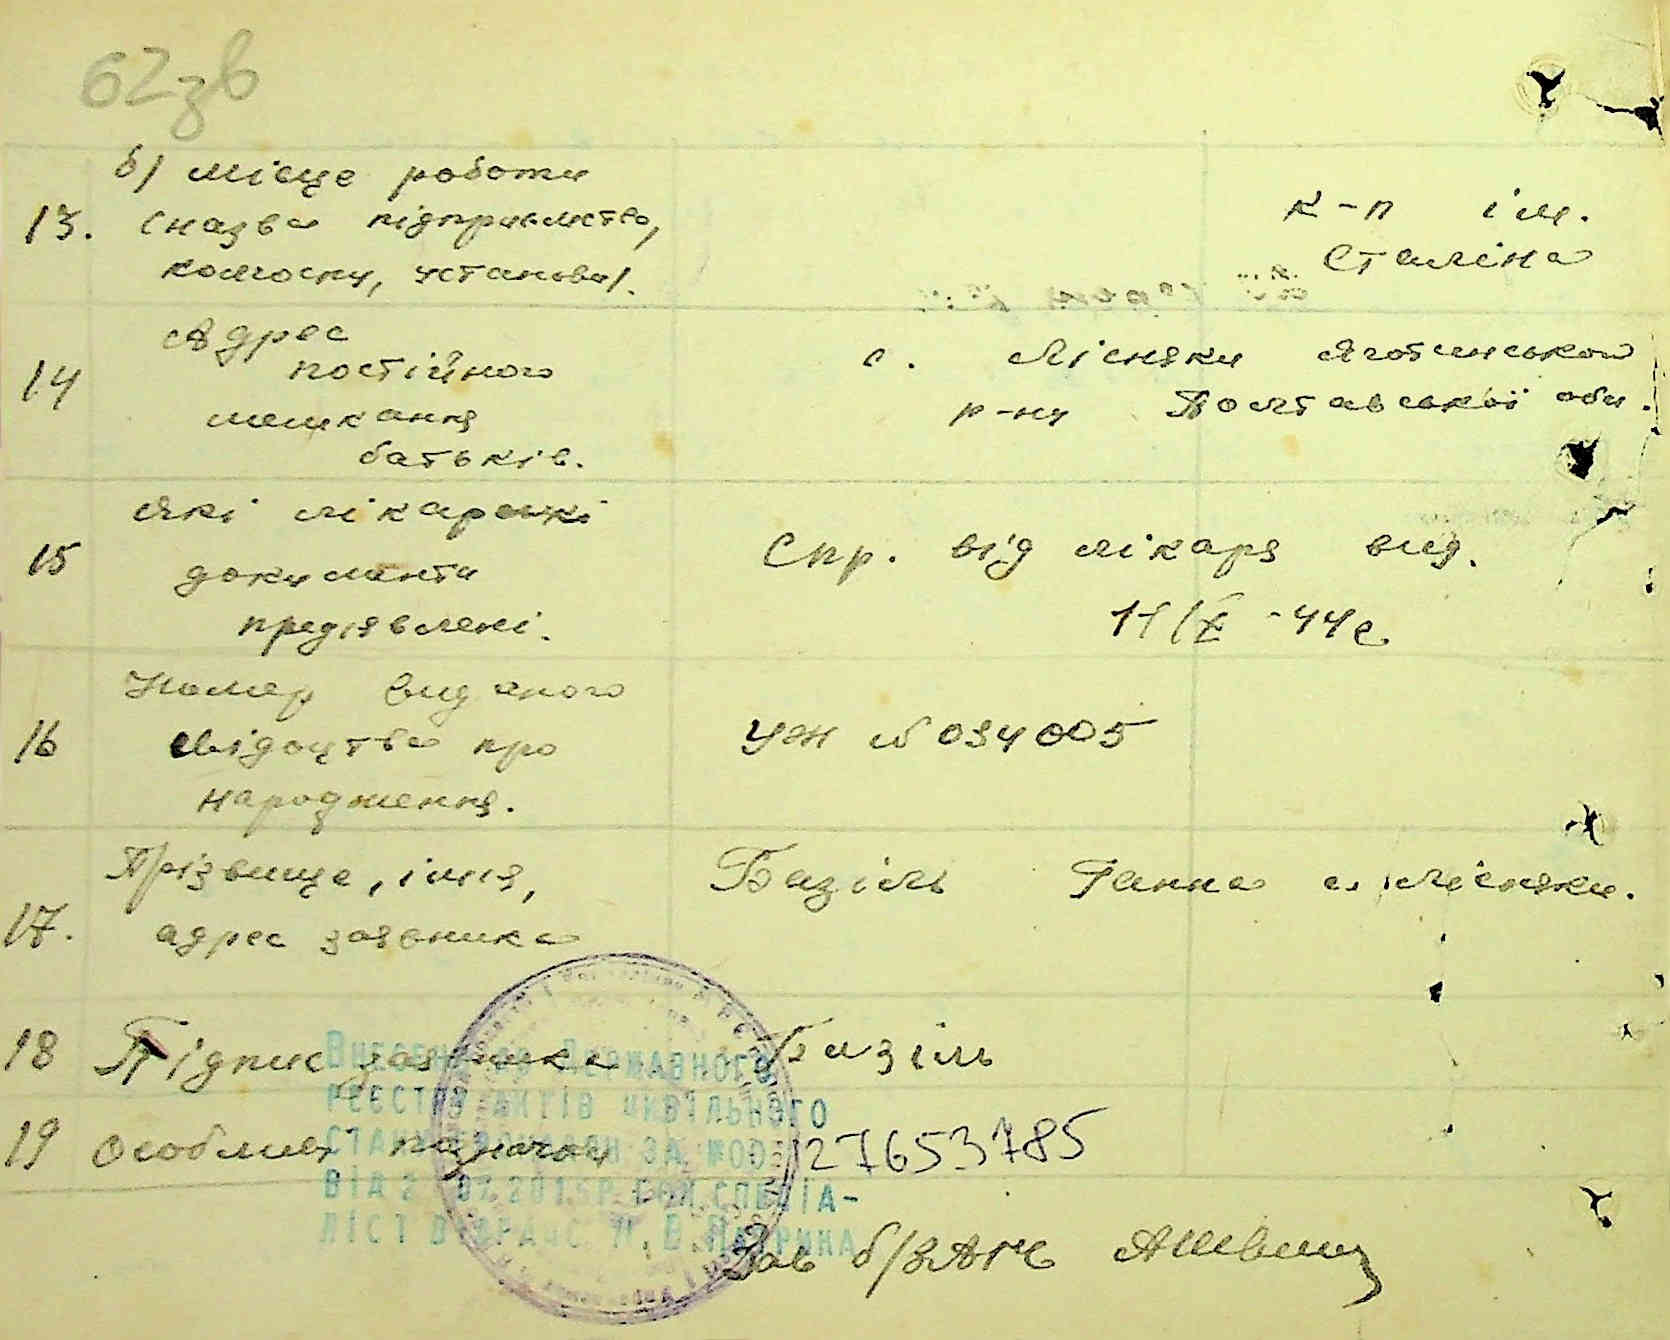 62зв
б) місце роботи
13. (назва підприємства, к-п ім.
колгоспу, установи). Сталіна
14 Адрес
постійного с. Лісняки Яготинського
мешкання р-ну Полтавської обл.
батьків.
Які лікарські
15 документи Спр. від лікаря вид.
предявлені. 11/IX-44 р.
Номер виданого
16 свідоцтва про УЖ № 034005
народження.
17. Прізвище, імя, Базіль Ганна с. Лісняки.
адрес заявника
18 Підпис заявника Базіль
19 Особливі позначки
Внесено до Державного
реєстру актів цивільного
стану громадян за №00127653785
від 2 07.2015р. спеціа-
ліст В. В.
Зав б/ЗАГС